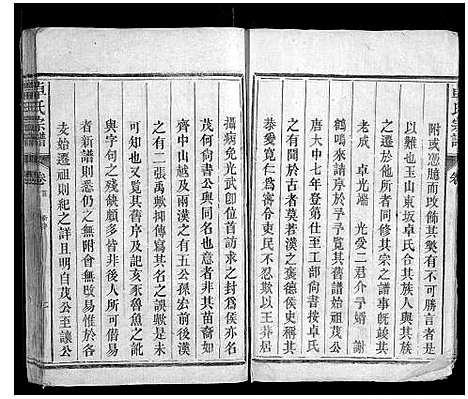 卓氏宗譜
附或憑臆而改飾其獘有不可勝言者是
以難也玉山東坂卓氏合其族人與其族
之遷於他所者同修其宗之譜事旣竣其
老成 卓光端 光愛二君介予婿 謝
鶴鳴來請序於予予覧其舊譜始祖茂公
唐大中七年登第仕至工部尙書按卓氏
之有聞於古者莫若漢之褒德侯史稱其
恭愛寛仁爲密令吏民不忍欺以王莽居
攝病免光武卽位首訪求之封爲侯亦名
茂何尙書公與同名也意者非其苗裔如
齊中山越及兩漢之有五公孫宏前後漢
之有二張禹歟抑傳寫其名之誤歟是未
可知也又覧其舊序及記亥豕魯魚之訛
與字句之殘缺顚多皆非後人所可借易
者新譜則悉仍之無附會無改易惟於各
支始遷祖則紀之詳且明自茂公至讓公
卓氏宗譜
卷首